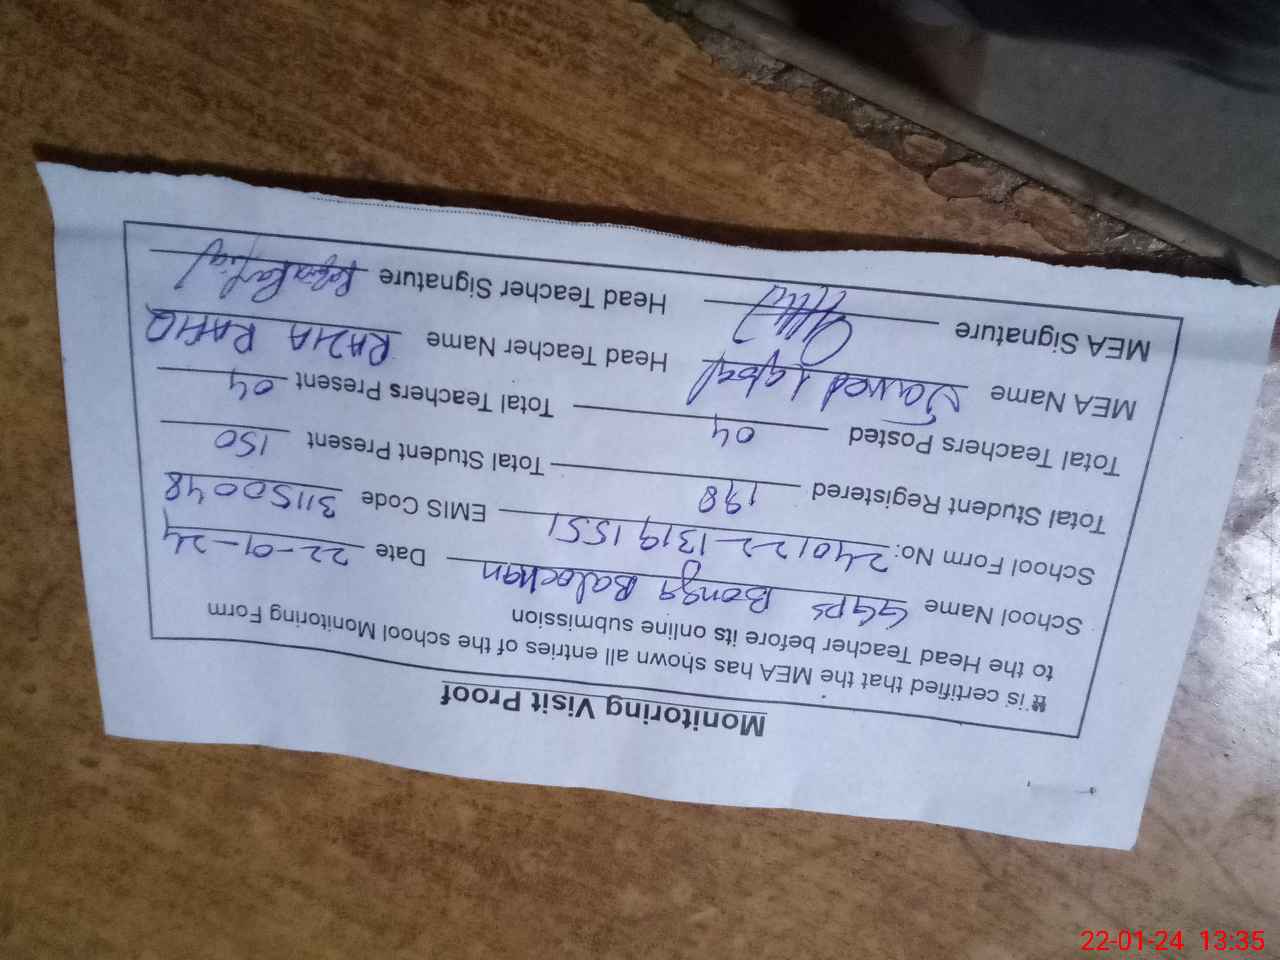 Monitoring Visit Proof
It is certified that the MEA has shown all entries of the school Monitoring Form
to the Head Teacher before its online submission
School Name GGPS Bonga Balochan Date 22-01-24
School Form No: 240122-13191551 EMIS Code 31150048
Total Student Registered 198 Total Student Present 150
Total Teachers Posted 04 Total Teachers Present 04
MEA Name Javed Iqbal Head Teacher Name RAZIA RAFIQ
MEA Signature Head Teacher Signature
22-01-24 13:35